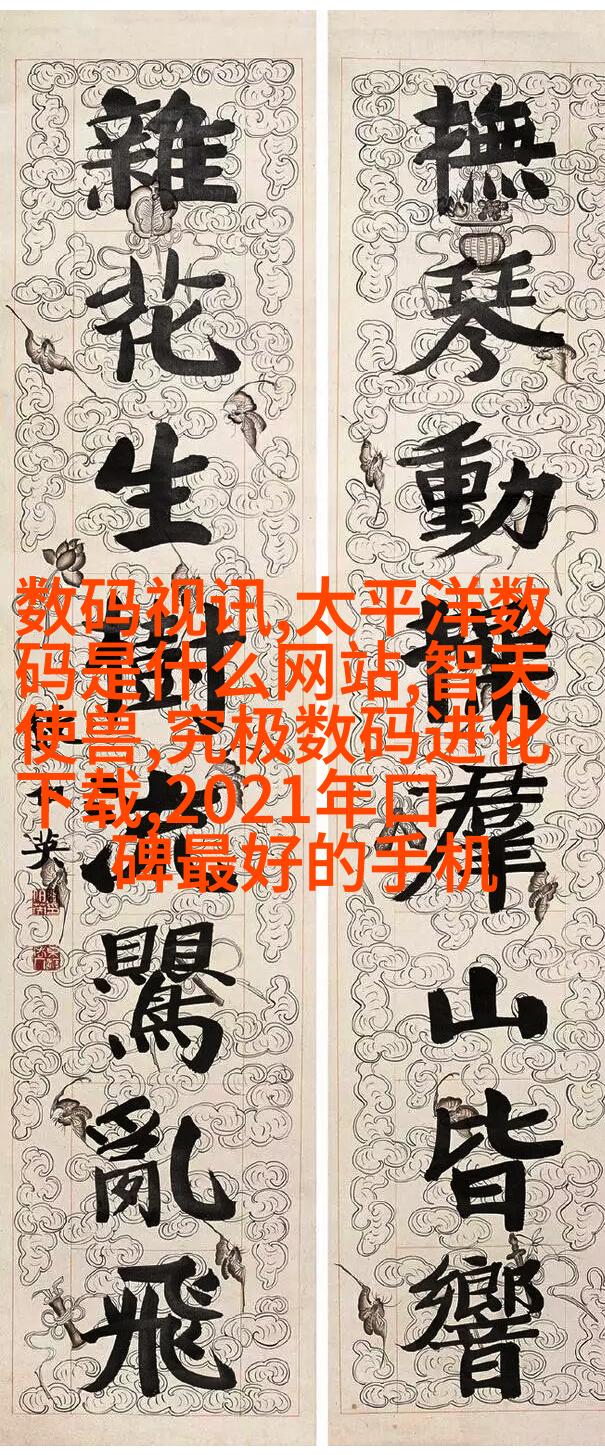 撫琴動操羣山皆響
雜花生樹鸎亂飛
英
数码视讯,太平洋数
码是什么网站,智天
使兽,究极数码进化
下载,2021年口
碑最好的手机